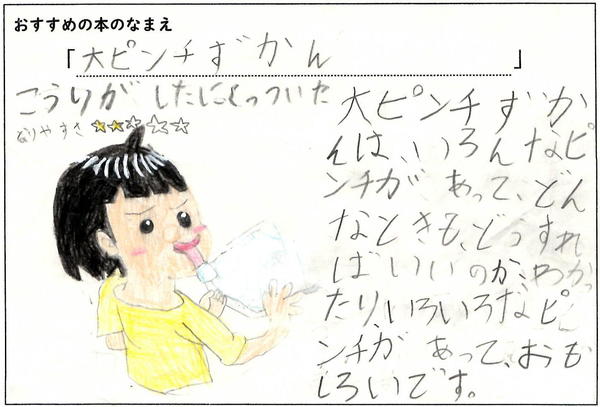 おすすめの本のなまえ
「大ピンチずかん」
こうりがしたにくっついた
なりやすさ ★★☆☆☆
大ピンチずか
んは、いろんなピ
ンチが あって、どん
なときも、どうすれ
ばいいのか、わかっ
たり、いろいろなピ
ンチが あって、おも
しろいです。